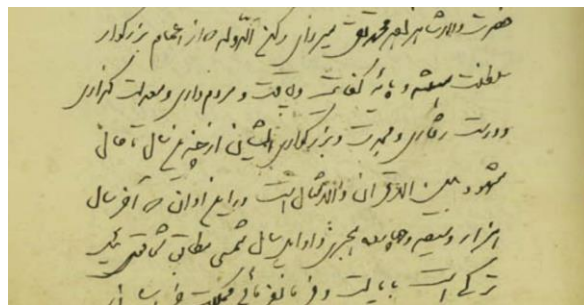 حضرت والا شاهزاده محمدتقی میرزای رکن الدوله که از اعمام بزرگوار
سلطنت میباشد و پایه کفایت و لیاقت و مردم داری و معدلت گذاری
و درست رفتاری و مجدت و بزرگواری ایشان از چند سال تا حال
مشهود بین الاقران والامثال است در این اوان که آخر سال
هزار و سیصد و چهار هجری و اوایل سال شمسی مطابق
ترکی است بایالت و فرمانفرمائی مملکت خراسان